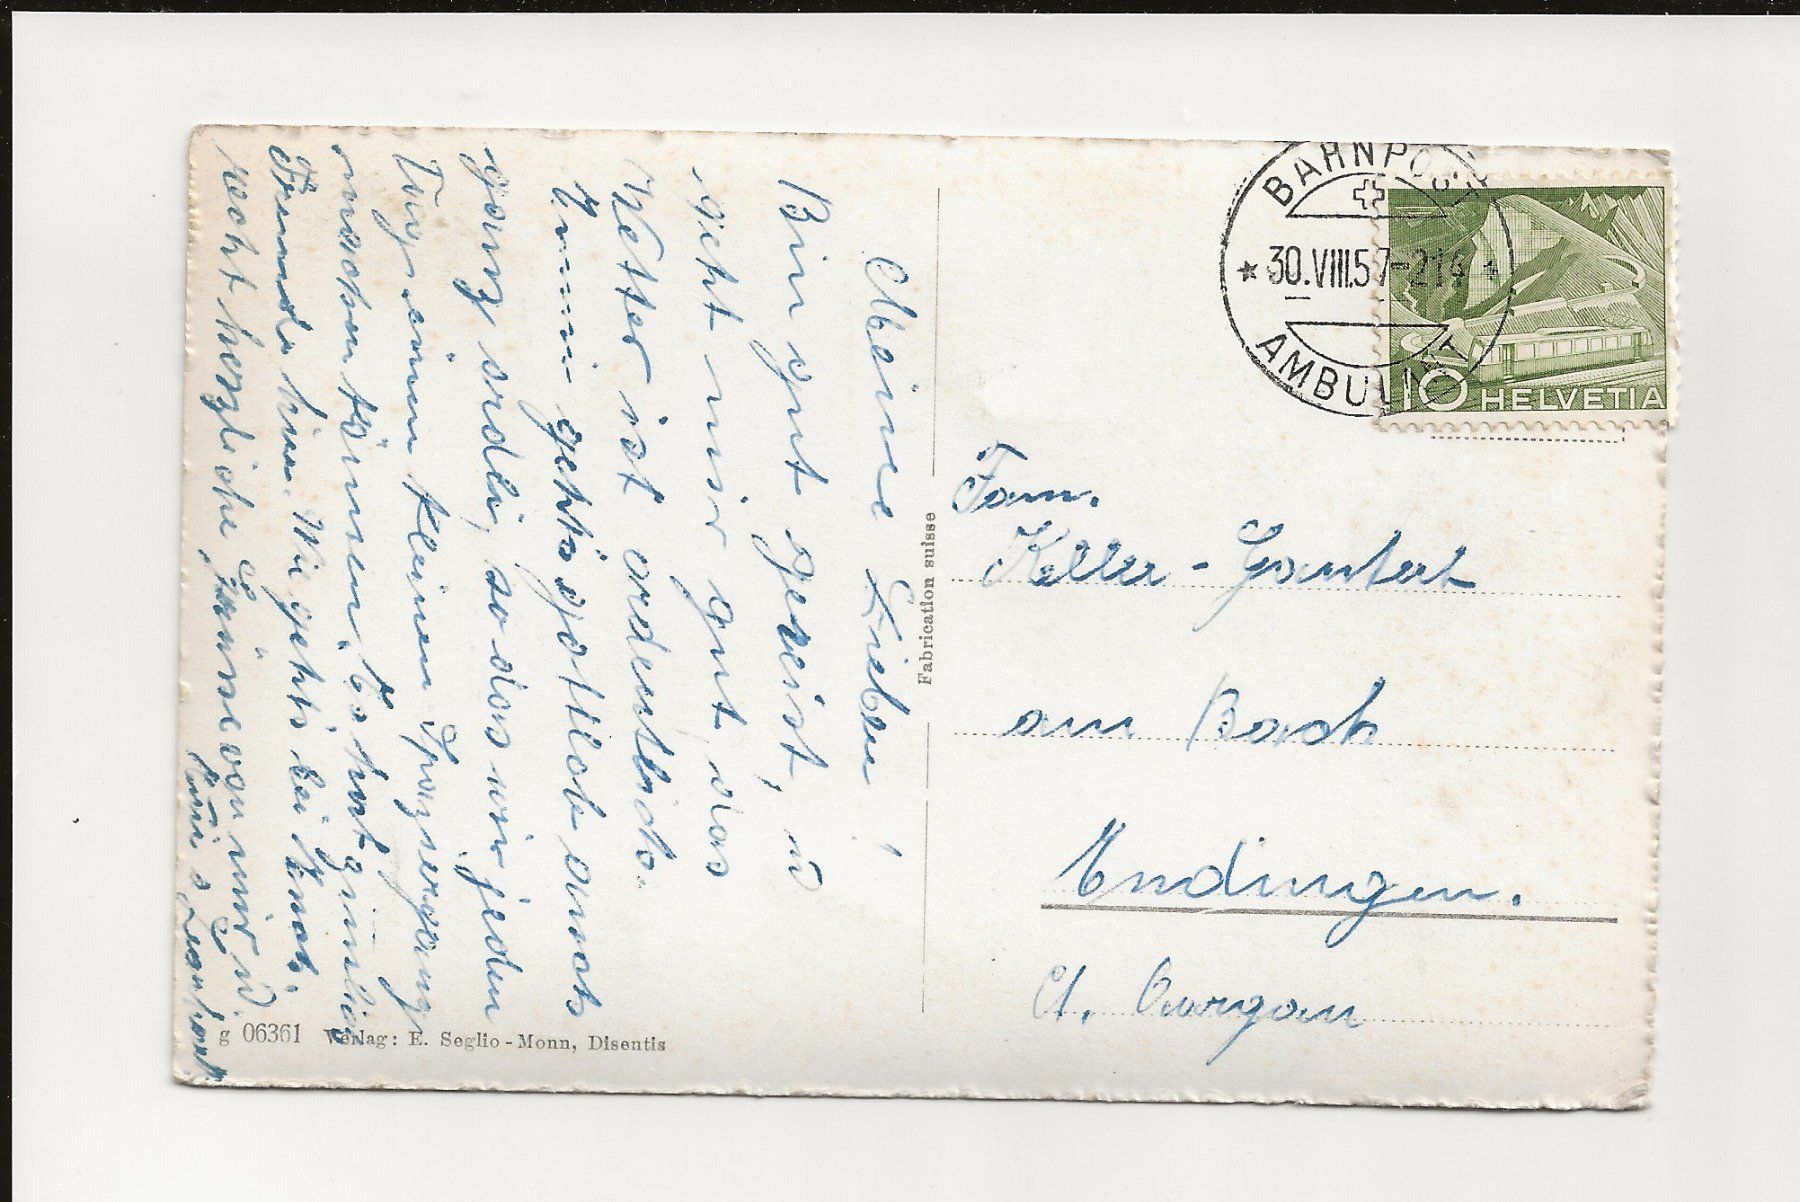 Meine Lieben!
Bin gut gereist, u
geht mir gut, das
Wetter ist ordentlich.
gehts gottlob auch
ganz ordli, so das wir jeden
Tag einen kleinen Spaziergang
machen können. Es hat ziemlich
Fremde hier. Wie gehts bei
recht herzliche Grüsse von mir u.
g 06361 Verlag: E. Seglio-Monn, Disentis
Fabrication suisse
BAHNPOST
30.VIII.57-214
AMBULANT
10 HELVETIA
Fam.
Keller-Gantert
am Bach
Endingen.
Ct. Aargau